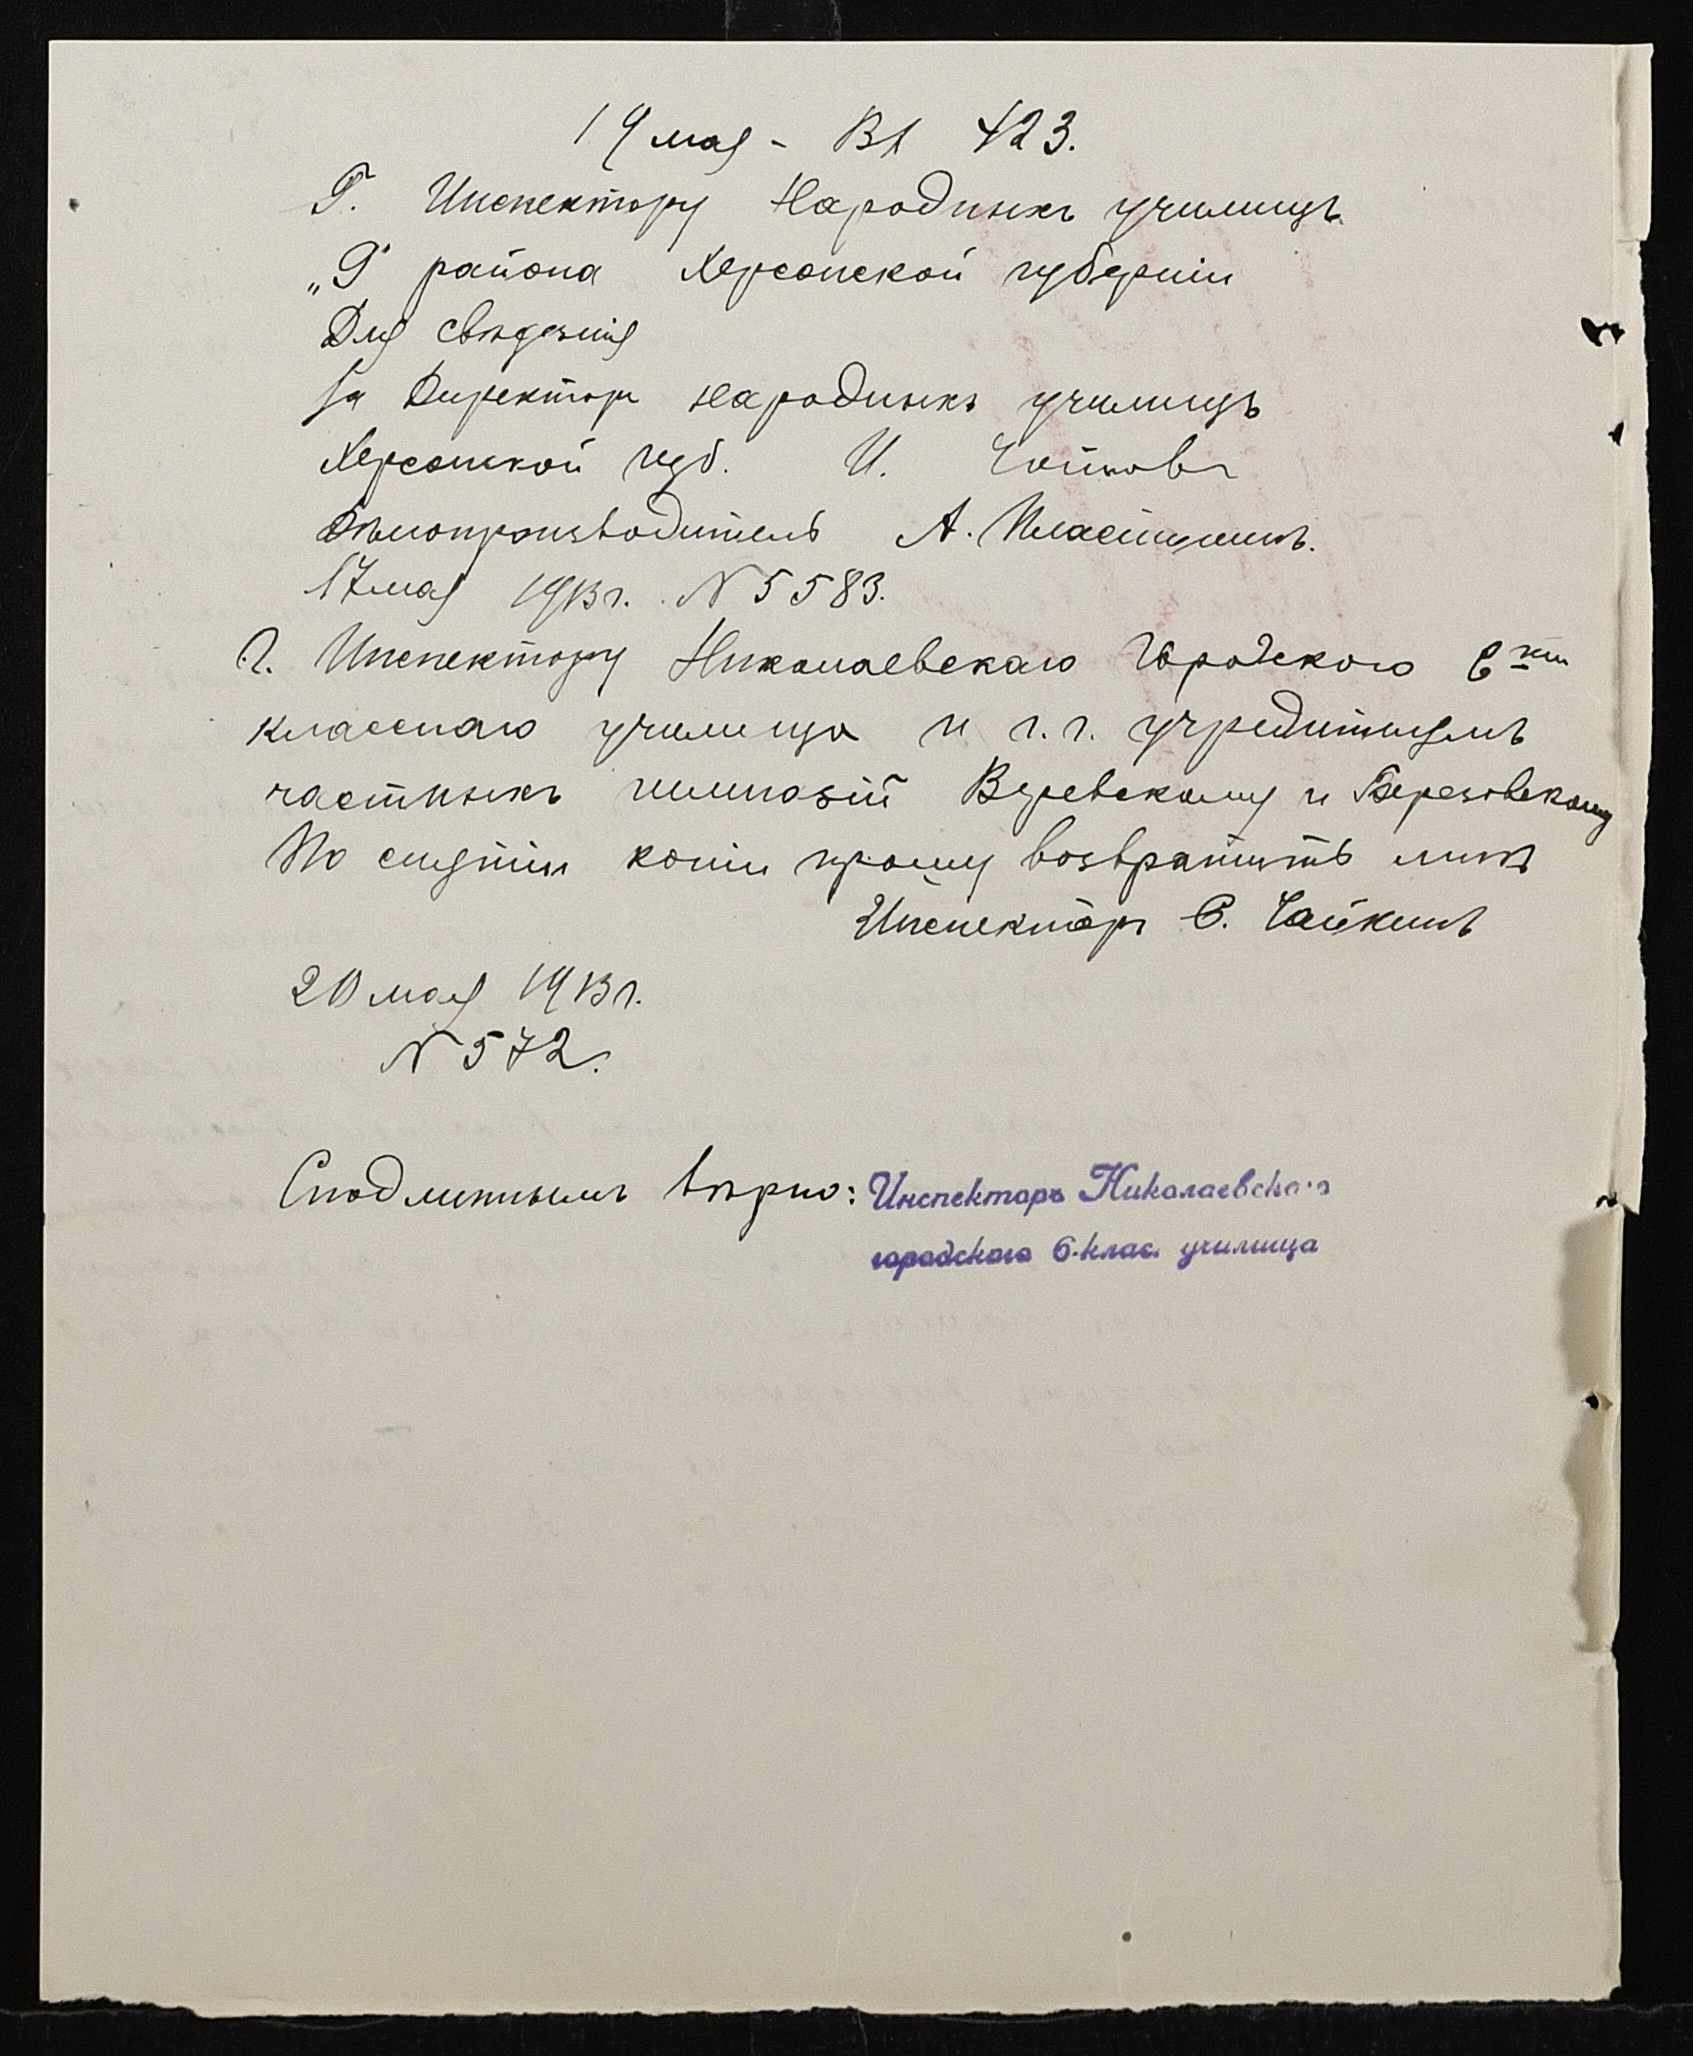 19 мая - Вх 423.
Г. Инспектору Народныхъ училищъ
"9" района Херсонской губерніи
Для свѣдѣнія
За Директора народныхъ училищъ
Херсонской губ. И.
Дѣлопроизводитель А.
17 мая 1913 г. N 5583.
Г. Инспектору Николаевскаго Городского 6ти
класснаго училища и г.г. учредителямъ
частныхъ гимназій и Березовскому
По снятіи копіи прошу возвратить мнѣ
Инспекторъ С. Чайкинъ
20 мая 1913 г.
N 572.
Съ подлиннымъ вѣрно: Инспекторъ Николаевскаго
городского 6-клас. училища